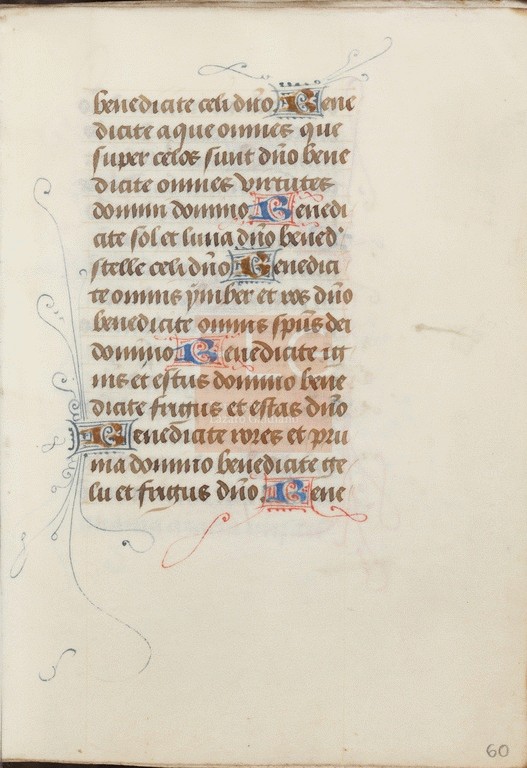 benedicite celi dño Bene
dicite aque omnes que
super celos sunt dño bene
dicite omnes virtutes
domini domino Benedi
cite sol et luna dño bened'
stelle celi dño Benedici
te omnis ymber et ros dño
benedicite omnis spũs dei
domino Benedicite ig
nis et estus domino bene
dicite frigus et estas dño
Benedicite rores et pru
ina domino benedicite ge
lu et frigus dño Bene
60